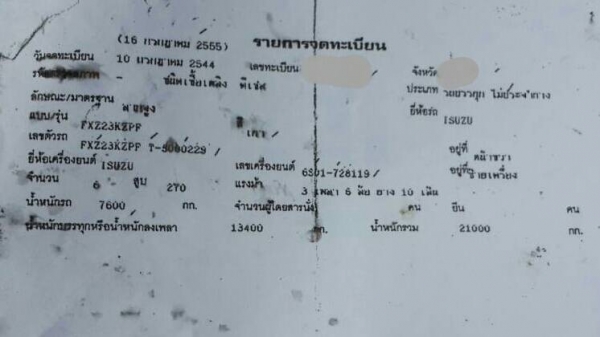 (16 กรกฎาคม 2555) รายการจดทะเบียน
วันจดทะเบียน 10 กรกฎาคม 2544 เลขทะเบียน จังหวัด
- ชนิดเชื้อเพลิง ดีเซล ประเภท รถบรรทุก ไม่ประจำทาง
ลักษณะ/มาตรฐาน ยี่ห้อรถ
แบบ/รุ่น FXZ23KZPF เทา ISUZU
เลขตัวรถ FXZ23KZPF T-5000229 อยู่ที่
ยี่ห้อเครื่องยนต์ ISUZU เลขเครื่องยนต์ 6SD1-728119 อยู่ที่
จำนวน 6 สูบ 270 แรงม้า 3 เพลา 6 ล้อ ยาง 10 เส้น
น้ำหนักรถ 7600 กก. จำนวนผู้โดยสารนั่ง คน ยืน คน
น้ำหนักบรรทุกหรือน้ำหนักลงเพลา 13400 กก. น้ำหนักรวม 21000 กก.